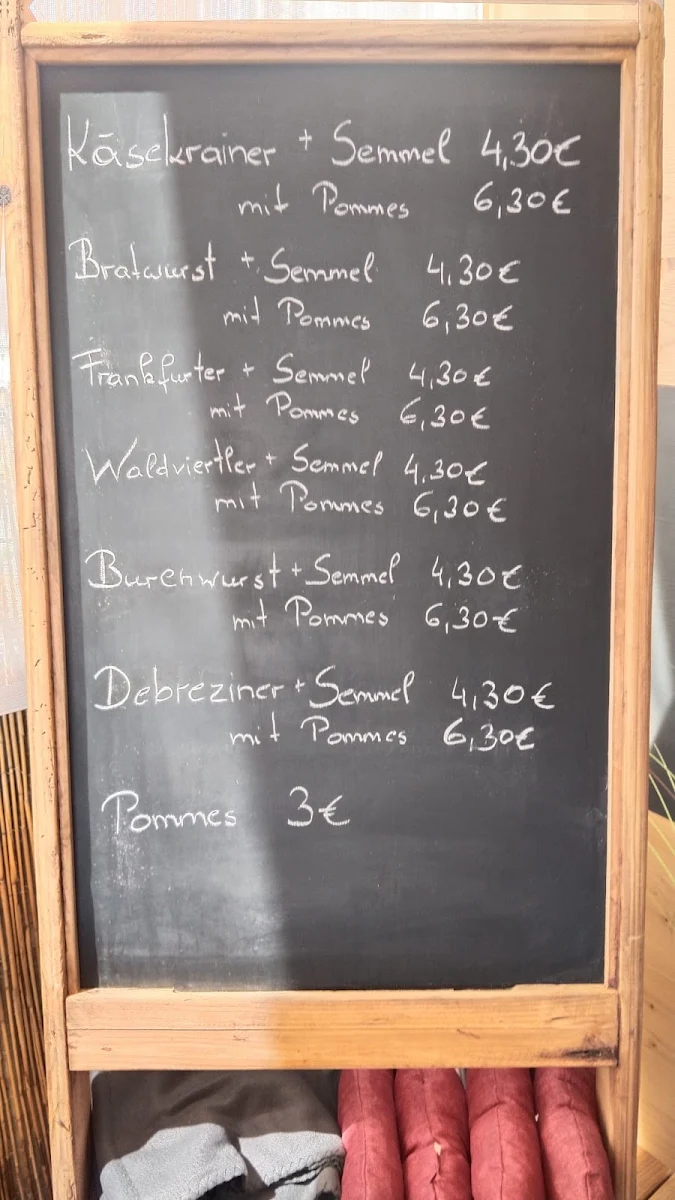 Käsekrainer + Semmel 4,30€
mit Pommes 6,30€
Bratwurst + Semmel 4,30€
mit Pommes 6,30€
Frankfurter + Semmel 4,30€
mit Pommes 6,30€
Waldviertler + Semmel 4,30€
mit Pommes 6,30€
Burenwurst + Semmel 4,30€
mit Pommes 6,30€
Debreziner + Semmel 4,30€
mit Pommes 6,30€
Pommes 3€